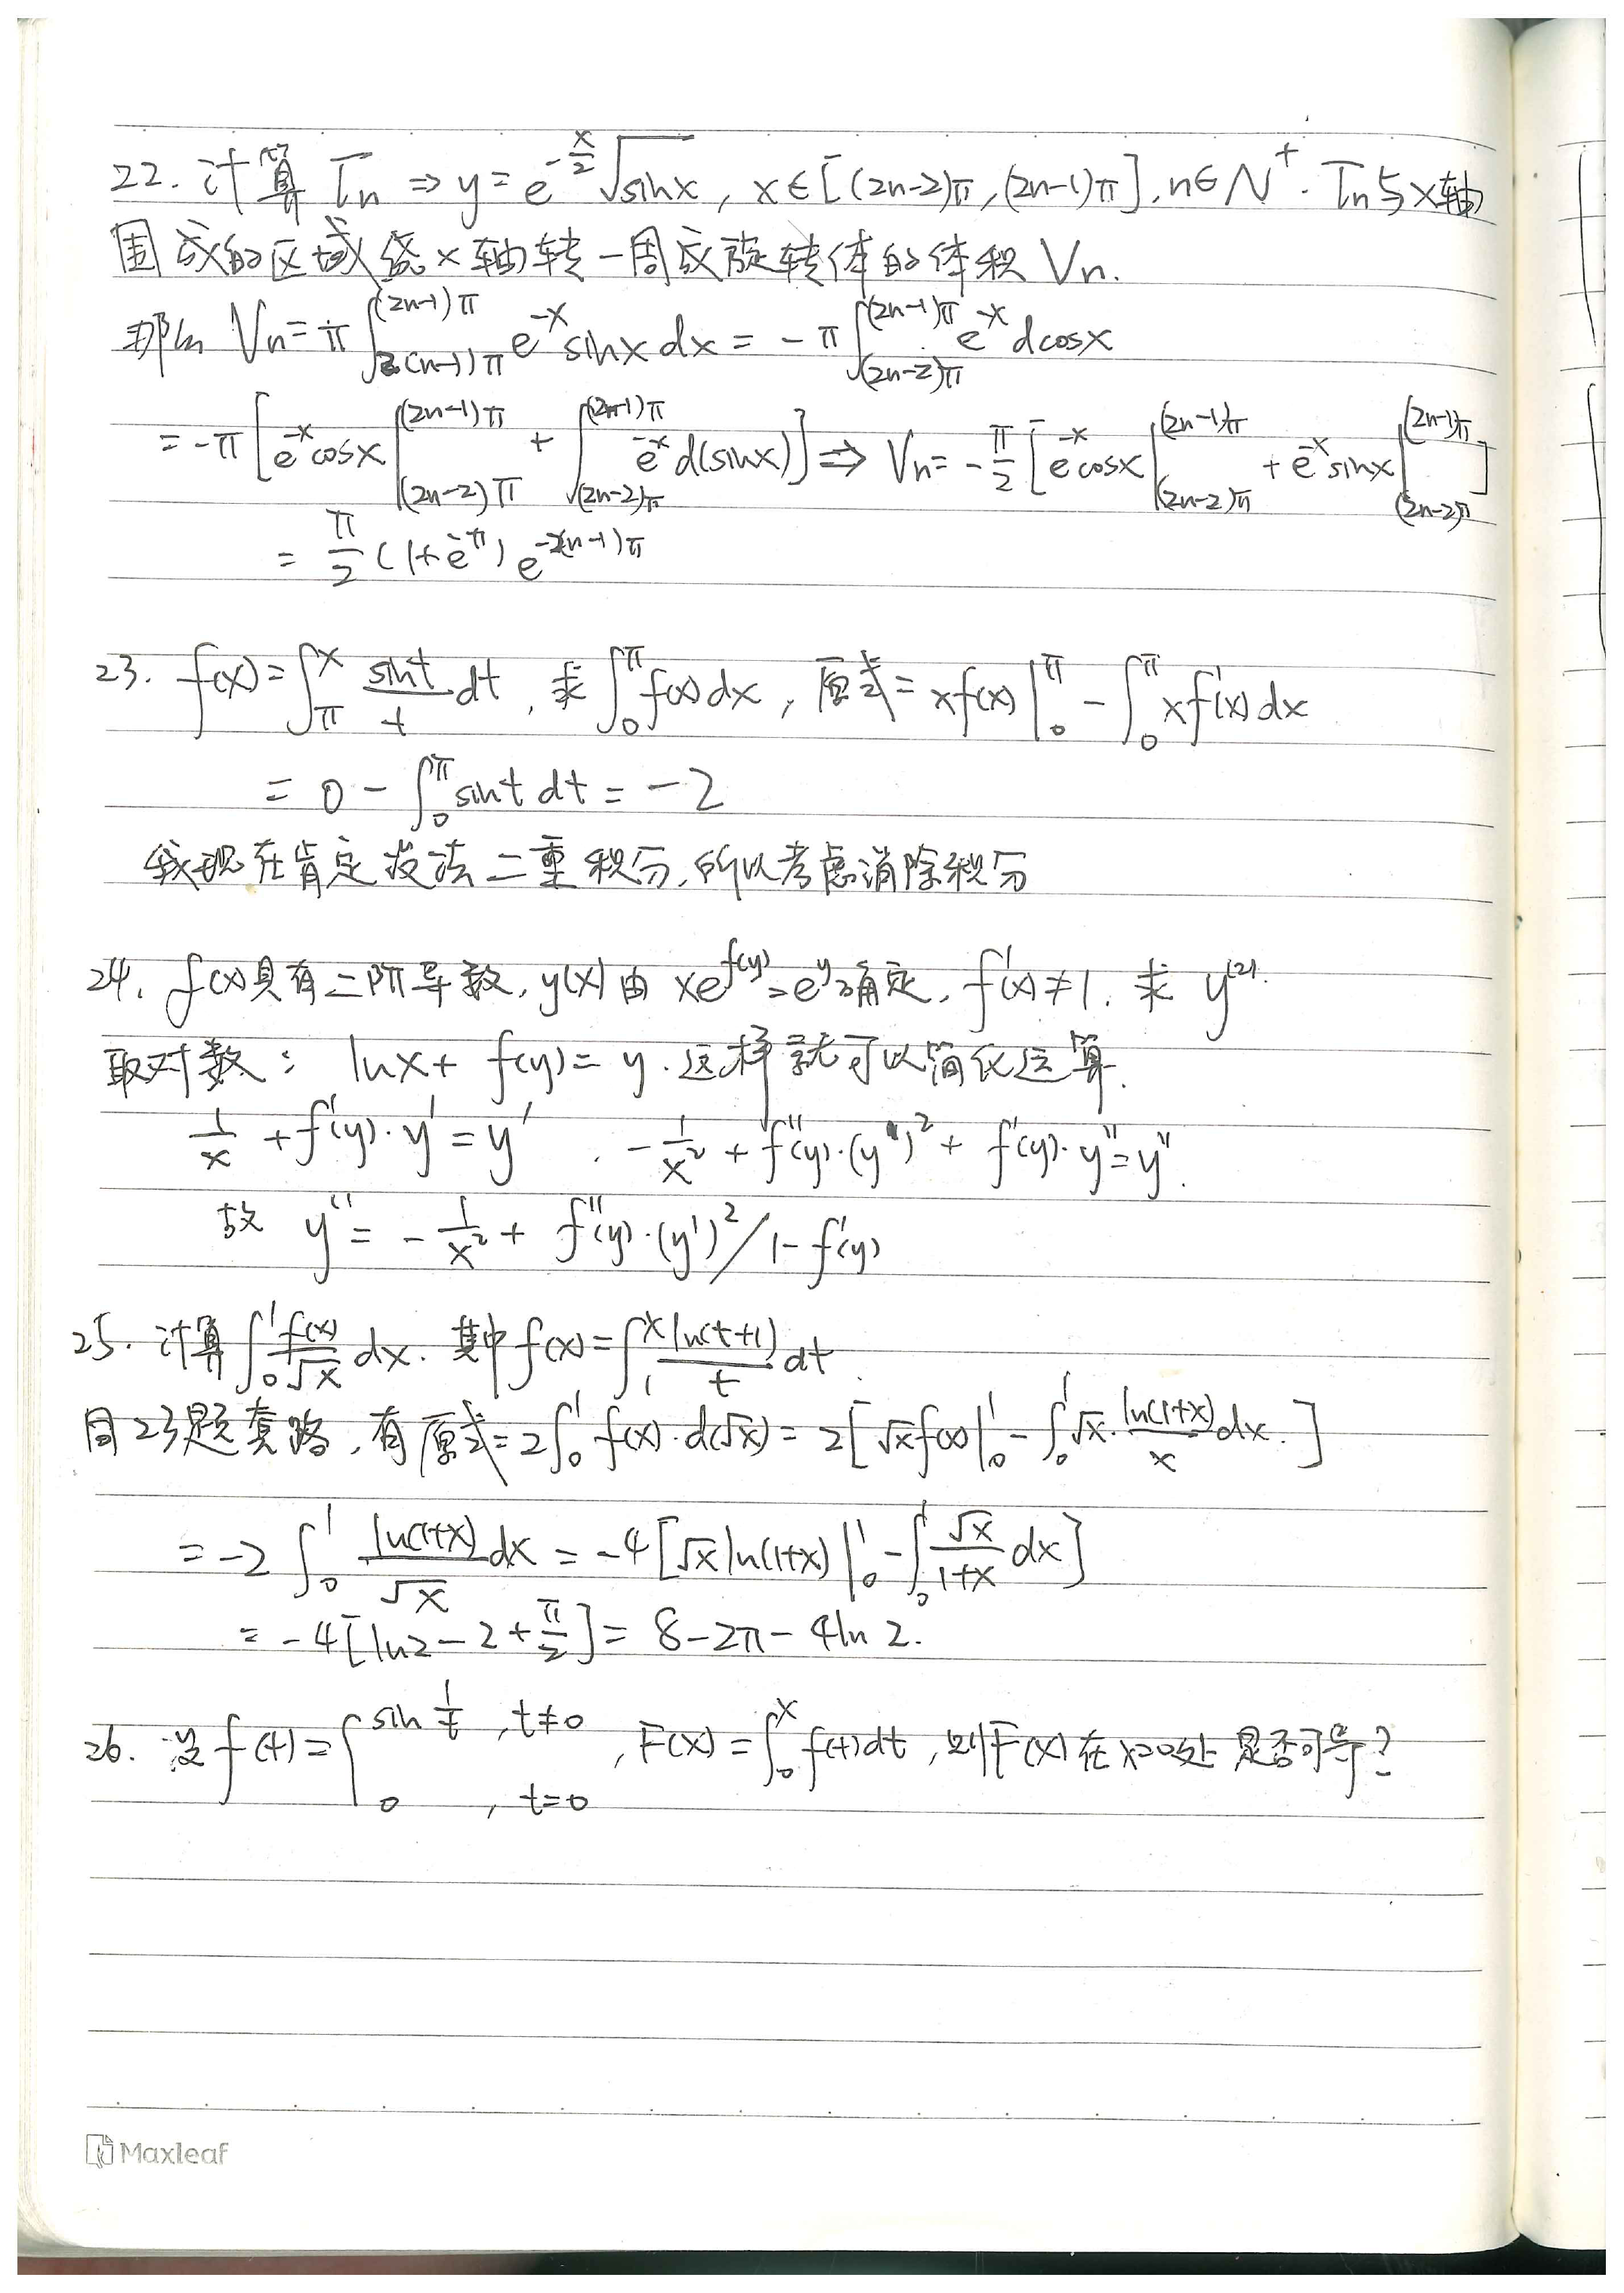 22. 计算 Tn ⇒ y = e^{-x/2}√(sinx), x∈[(2n-2)π,(2n-1)π], n∈N⁺. Tn与x轴
围成的区域绕x轴转一周成旋转体的体积 Vn.
那么 Vn = π∫_{2(n-1)π}^{(2n-1)π} e^{-x} sinx dx = -π∫_{(2n-2)π}^{(2n-1)π} e^{-x} dcosx
= -π[e^{-x}cosx|_{(2n-2)π}^{(2n-1)π} + ∫_{(2n-2)π}^{(2n-1)π} e^{-x} d(sinx)] ⇒ Vn = -π/2 [e^{-x}cosx|_{(2n-2)π}^{(2n-1)π} + e^{-x}sinx|_{(2n-2)π}^{(2n-1)π}]
= π/2 (1+e^{-π}) e^{-2(n-1)π}
23. f(x) = ∫_π^x sint/t dt, 求∫_0^π f(x)dx, 原式 = xf(x)|_0^π - ∫_0^π xf'(x)dx
= 0 - ∫_0^π sint dt = -2
我现在肯定没法二重积分,所以考虑消除积分
24. f(x)具有二阶导数, y(x)由 xe^{f(y)} = e^y 确定, f'(x)≠1. 求 y^{(2)}.
取对数: lnx + f(y) = y. 这样就可以简化运算.
1/x + f'(y)·y' = y'. -1/x² + f''(y)·(y')² + f'(y)·y'' = y''.
故 y'' = -1/x² + f''(y)·(y')² / 1-f'(y)
25. 计算∫_0^1 f(x)/√x dx. 其中 f(x) = ∫_1^x ln(t+1)/t dt.
同23题套路, 有原式 = 2∫_0^1 f(x)·d(√x) = 2[√x f(x)|_0^1 - ∫_0^1 √x·ln(1+x)/x dx.]
= -2∫_0^1 ln(1+x)/√x dx = -4[√x ln(1+x)|_0^1 - ∫_0^1 √x/(1+x) dx]
= -4[ln2 - 2 + π/2] = 8 - 2π - 4ln2.
26. 设 f(t) = { sin 1/t, t≠0 , F(x) = ∫_0^x f(t)dt, 则F(x)在x=0处是否可导?
0, t=0
Maxleaf